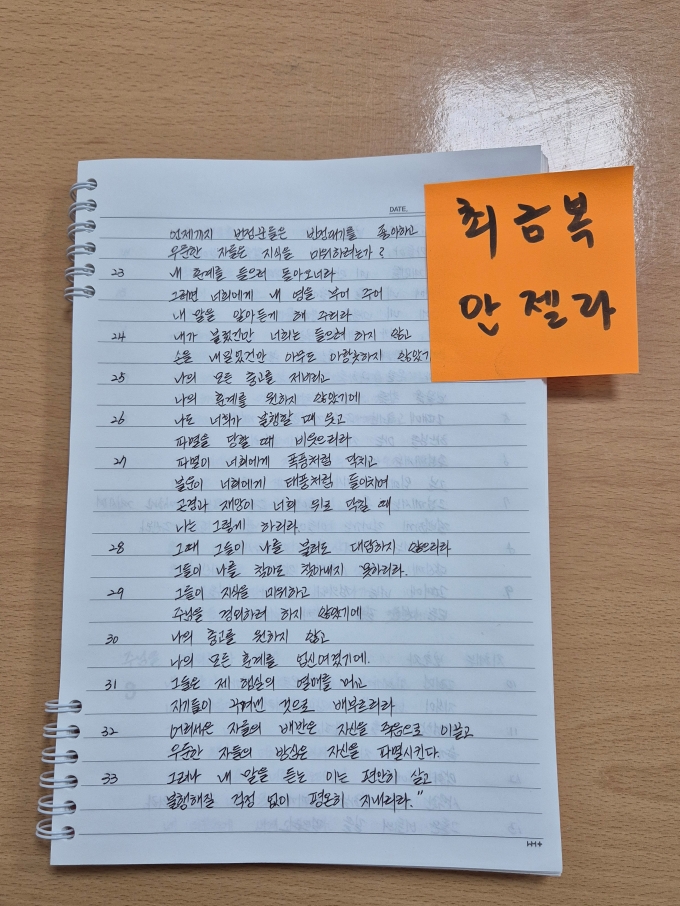 DATE.
언제까지 빈정꾼들은 빈정대기를 좋아하고
우둔한 자들은 지식을 미워하려는가?
23 내 훈계를 들으러 돌아오너라
그러면 너희에게 내 영을 부어 주어
내 말을 알아듣게 해 주리라
24 내가 불렀건만 너희는 들으려 하지 않고
손을 내밀었건만 아무도 아랑곳하지 않았기
25 나의 모든 충고를 저버리고
나의 훈계를 원하지 않았기에
26 나도 너희가 불행할 때 웃고
파멸을 당할 때 비웃으리라
27 파멸이 너희에게 폭풍처럼 닥치고
불운이 너희에게 태풍처럼 들이치며
곤경과 재앙이 너희 위로 닥칠 때
나는 그렇게 하리라
28 그때 그들이 나를 불러도 대답하지 않으리라
그들이 나를 찾아도 찾아내지 못하리라.
29 그들이 지식을 미워하고
주님을 경외하려 하지 않았기에
30 나의 충고를 원하지 않고
나의 모든 훈계를 업신여겼기에.
31 그들은 제 행실의 열매를 먹고
자기들이 꾸며낸 것으로 배부르리라
32 어리석은 자들의 배반은 자신을 죽음으로 이끌고
우둔한 자들의 방심은 자신을 파멸시킨다.
33 그러나 내 말을 듣는 이는 편안히 살고
불행해질 걱정 없이 평온히 지내리라."
최금복
안젤라